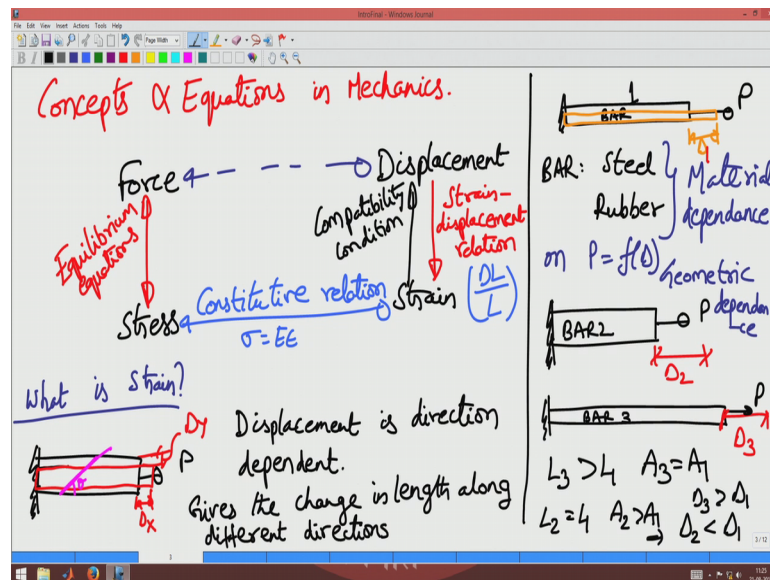 IntroFinal - Windows Journal
File Edit View Insert Actions Tools Help
Page Width
B I
Concepts & Equations in Mechanics.
Force
Displacement
Equilibrium
equations
Compatibility
condition
Strain-
displacement
relation
Stress
Constitutive relation
σ=Eε
Strain (DL/L)
What is Strain?
Dy
P
θ
Dx
Displacement is direction
dependent.
Gives the change in length along
different directions
L
P
BAR
D1
BAR: Steel
Rubber
Material
dependence
on P=f(D)
Geometric
dependence
BAR2
P
D2
BAR 3
P
D3
L3 > L1 A3 = A1
D3 > D1
L2 = L1 A2 > A1
→ D2 < D1
3
3/12
11:25